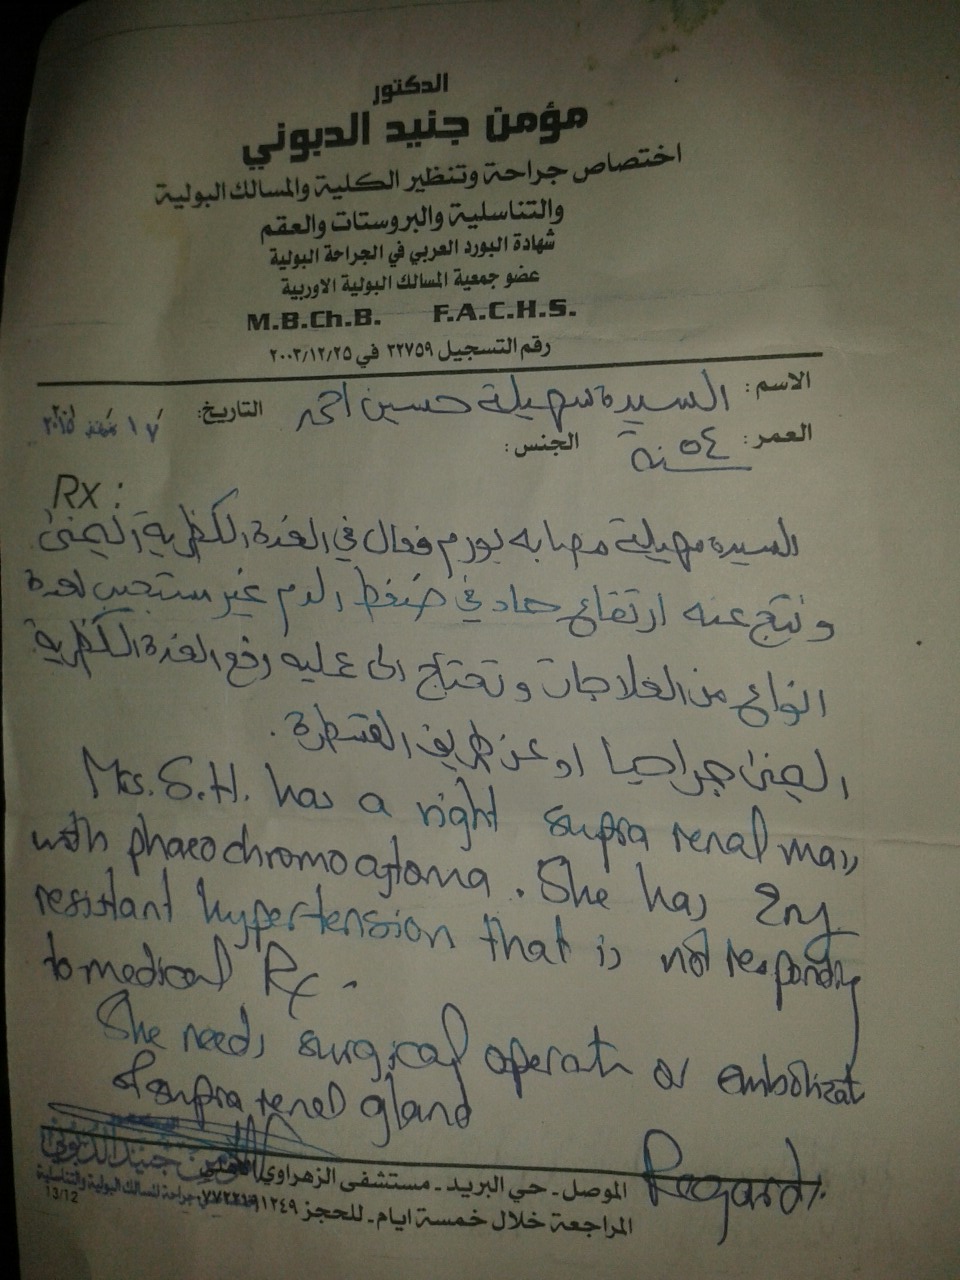 الدكتور
مؤمن جنيد الدبوني
اختصاص جراحة وتنظير الكلية والمسالك البولية
والتناسلية والبروستات والعقم
شهادة البورد العربي في الجراحة البولية
عضو جمعية المسالك البولية الاوربية
M.B.Ch.B. F.A.C.H.S.
رقم التسجيل ٢٢٧٥٩ في ٢٠٠٢/١٢/٢٥
الاسم: السيدة سهيلة حسين احمد التاريخ: ٢٠١٥
العمر: ٥٤ سنة الجنس:
Rx:
السيدة سهيلة مصابه بورم فعال في الغدة الكظرية اليمنى
ونتج عنه ارتفاع حاد في ضغط الدم غير مستجيب لعدة
انواع من العلاجات وتحتاج الى عمليه رفع الغدة الكظرية
اليمنى جراحيا او عن طريق القسطرة.
Mrs. S.H. has a right supra renal mass
with phaeochromocytoma. She has
resistant hypertension that is not responding
to medical Rx.
She needs surgical operat or embolizat
of supra renal gland
Regards
مؤمن جنيد الدبوني
جراحة المسالك البولية والتناسلية
13/12
الموصل - حي البريد - مستشفى الزهراوي الاهلي
المراجعة خلال خمسة ايام - للحجز